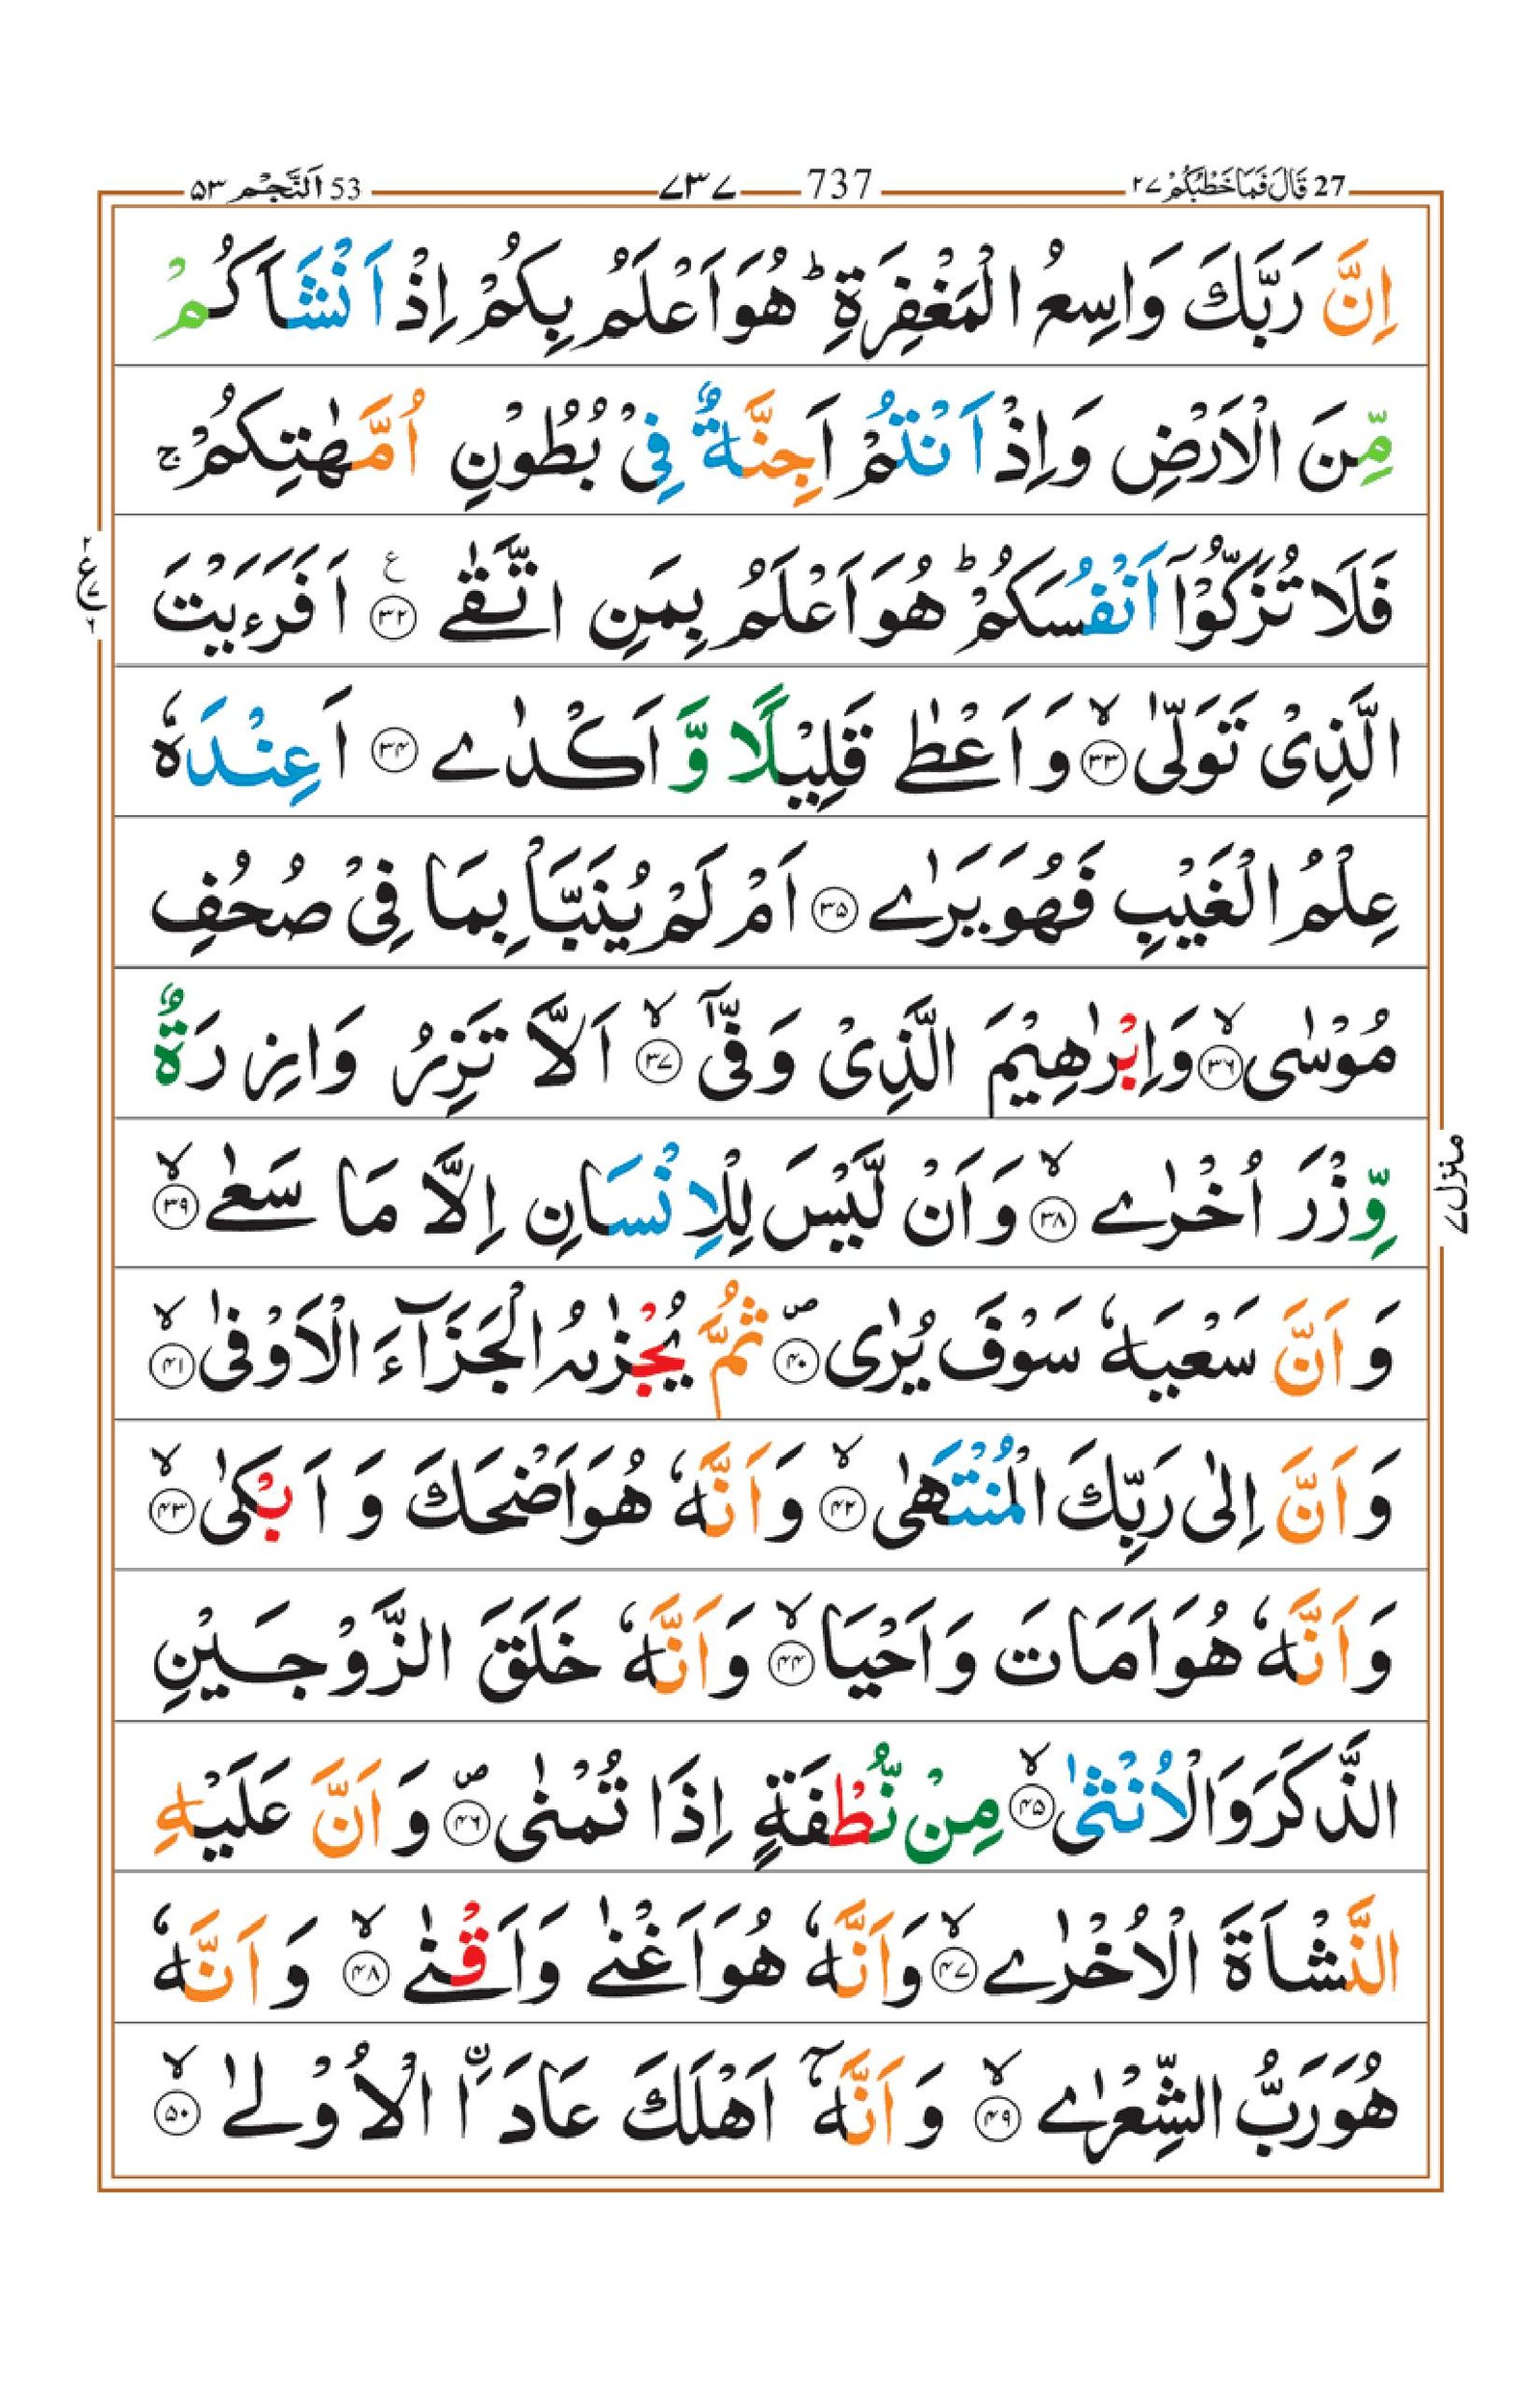 27 قَالَ فَمَا خَطْبُكُمْ ۲۷
737 ۷۳۷
53 اَلنَّجْم ۵۳
اِنَّ رَبَّكَ وَاسِعُ الْمَغْفِرَةِ ؕ هُوَ اَعْلَمُ بِكُمْ اِذْ اَنْشَاَكُمْ
مِّنَ الْاَرْضِ وَاِذْ اَنْتُمْ اَجِنَّةٌ فِیْ بُطُوْنِ اُمَّهٰتِكُمْ ۚ
فَلَا تُزَكُّوْۤا اَنْفُسَكُمْ ؕ هُوَ اَعْلَمُ بِمَنِ اتَّقٰے ۳۲ ع اَفَرَءَیْتَ
الَّذِیْ تَوَلّٰی ۙ ۳۳ وَاَعْطٰے قَلِیْلًا وَّاَكْدٰے ۳۴ اَعِنْدَهٗ
عِلْمُ الْغَیْبِ فَهُوَ یَرٰے ۳۵ اَمْ لَمْ یُنَبَّاْ بِمَا فِیْ صُحُفِ
مُوْسٰی ۙ ۳۶ وَاِبْرٰهِیْمَ الَّذِیْ وَفّٰۤی ۙ ۳۷ اَلَّا تَزِرُ وَازِرَةٌ
وِّزْرَ اُخْرٰے ۙ ۳۸ وَاَنْ لَّیْسَ لِلْاِنْسَانِ اِلَّا مَا سَعٰے ۙ ۳۹
وَاَنَّ سَعْیَهٗ سَوْفَ یُرٰی ۪ ۴۰ ثُمَّ یُجْزٰىهُ الْجَزَآءَ الْاَوْفٰی ۙ ۴۱
وَاَنَّ اِلٰی رَبِّكَ الْمُنْتَهٰی ۙ ۴۲ وَاَنَّهٗ هُوَ اَضْحَكَ وَاَبْكٰی ۙ ۴۳
وَاَنَّهٗ هُوَ اَمَاتَ وَاَحْیَا ۙ ۴۴ وَاَنَّهٗ خَلَقَ الزَّوْجَیْنِ
الذَّكَرَ وَالْاُنْثٰی ۙ ۴۵ مِنْ نُّطْفَةٍ اِذَا تُمْنٰی ۪ ۴۶ وَاَنَّ عَلَیْهِ
النَّشْاَةَ الْاُخْرٰے ۙ ۴۷ وَاَنَّهٗ هُوَ اَغْنٰے وَاَقْنٰے ۙ ۴۸ وَاَنَّهٗ
هُوَ رَبُّ الشِّعْرٰے ۙ ۴۹ وَاَنَّهٗۤ اَهْلَكَ عَادَاۨ الْاُوْلٰے ۙ ۵۰
ع ۲ ۷ ۶
منزل ۷